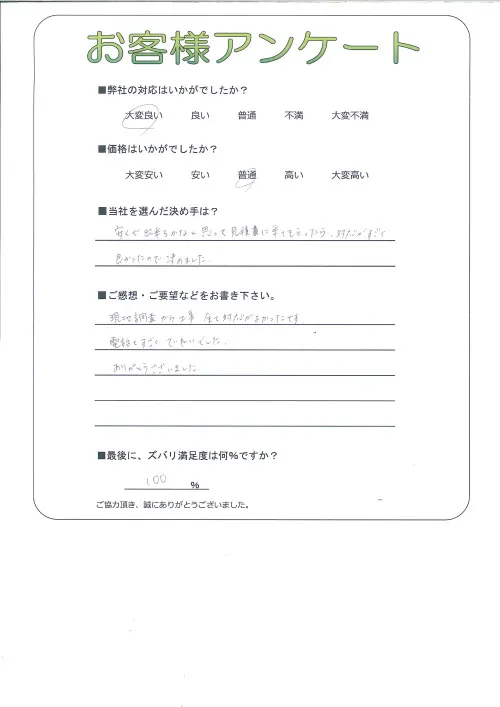 お客様アンケート
■弊社の対応はいかがでしたか？
大変良い 良い 普通 不満 大変不満
■価格はいかがでしたか？
大変安い 安い 普通 高い 大変高い
■当社を選んだ決め手は？
安くで出来るかなと思って見積書に来てもらったら、対応がすごく
良かったので決めました。
■ご感想・ご要望などをお書き下さい。
現地調査から工事 全て対応がよかったです。
電話もすごくていねいでした。
ありがとうございました。
■最後に、ズバリ満足度は何％ですか？
100 ％
ご協力頂き、誠にありがとうございました。